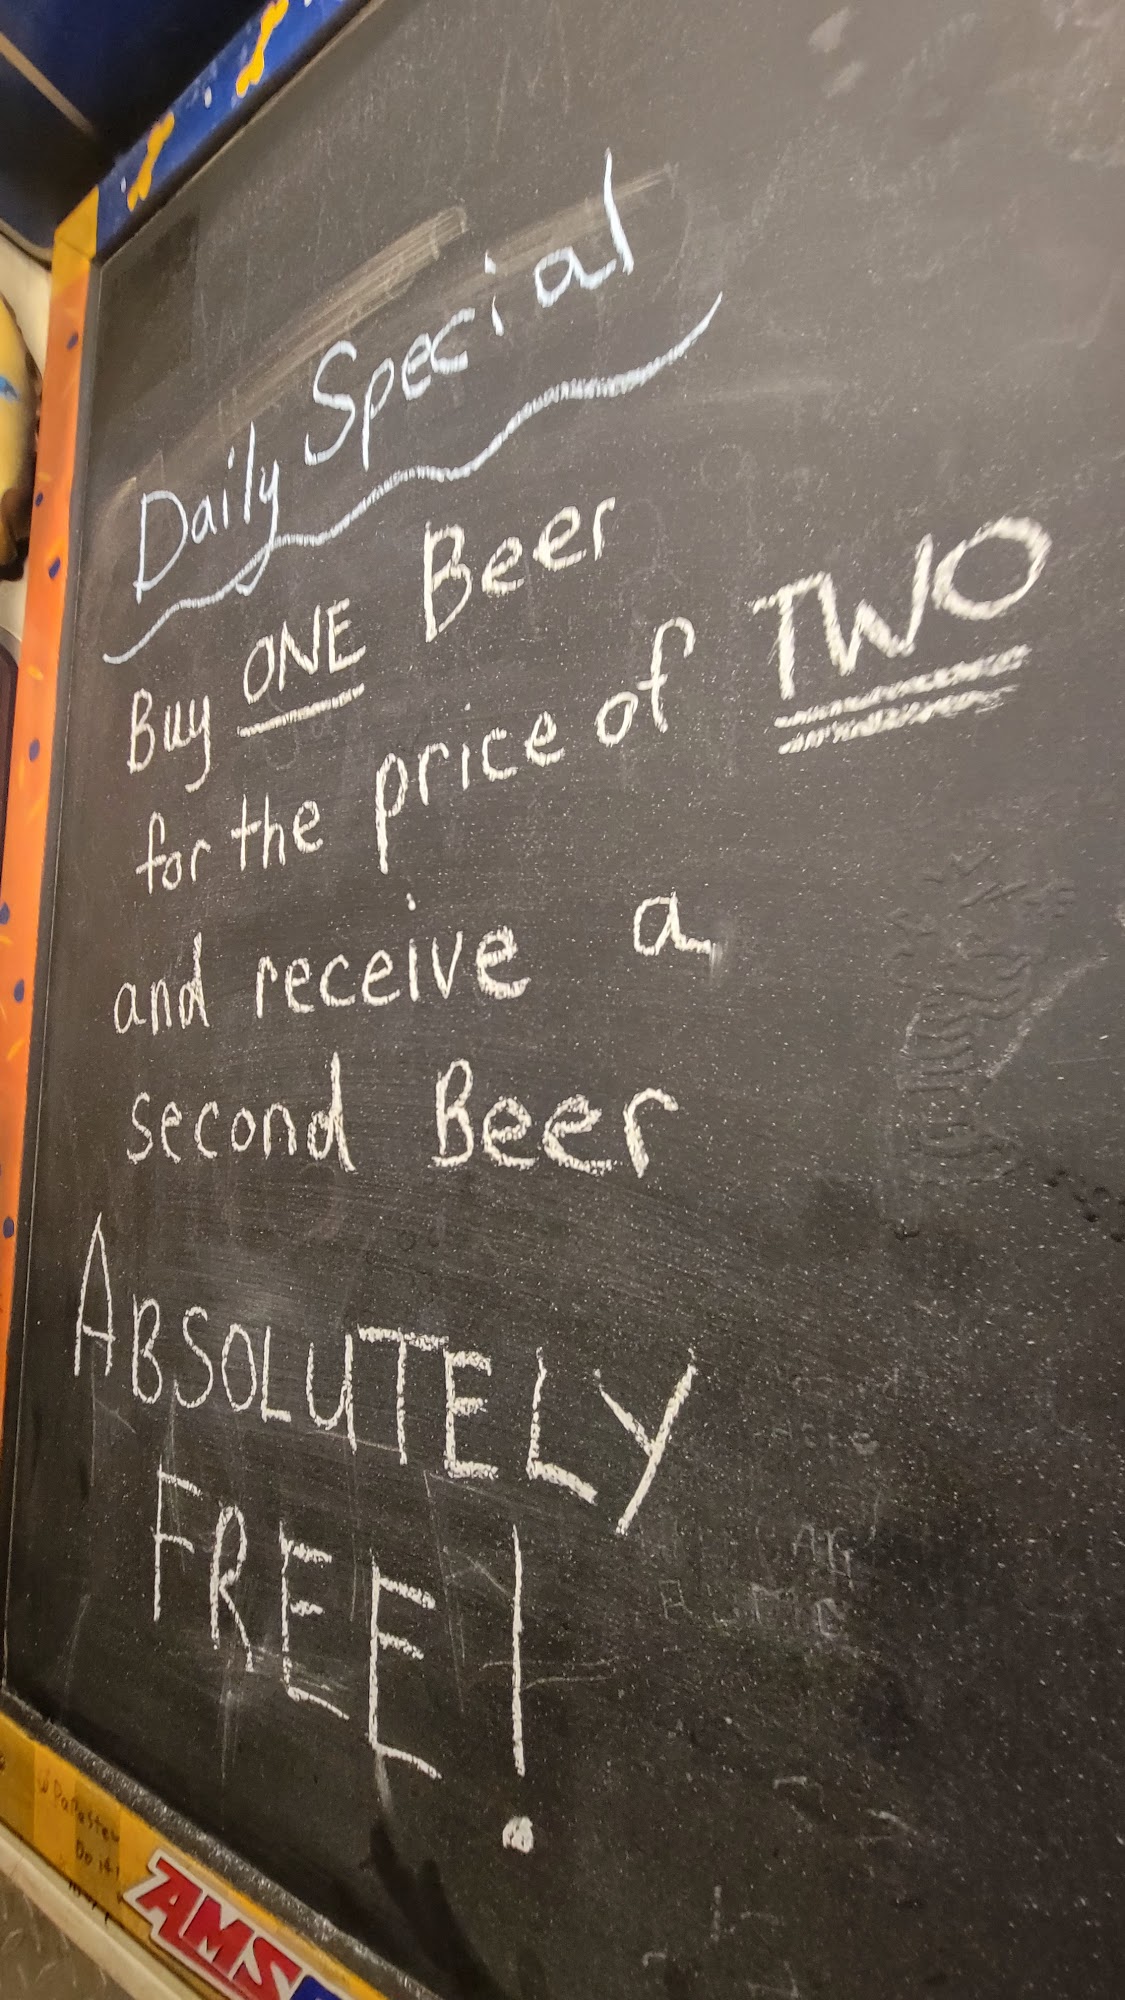 Daily Special
Buy ONE Beer
for the price of TWO
and receive a
second Beer
ABSOLUTELY
FREE!
AMS